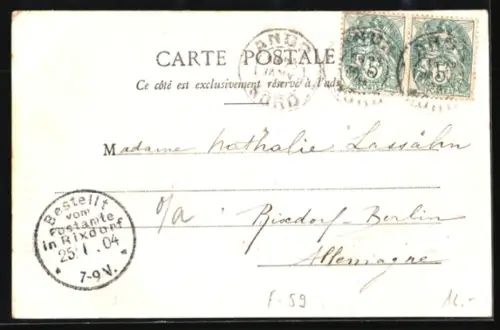 CARTE POSTALE
Ce côté est exclusivement réservé à l'adr
5 5
Madame Nathalie Lassahn
Bestellt
vom
Postamte
in Rixdorf
25.1.04
7-9V.
p/a Rixdorf-Berlin
Allemagne
F-59
12.-